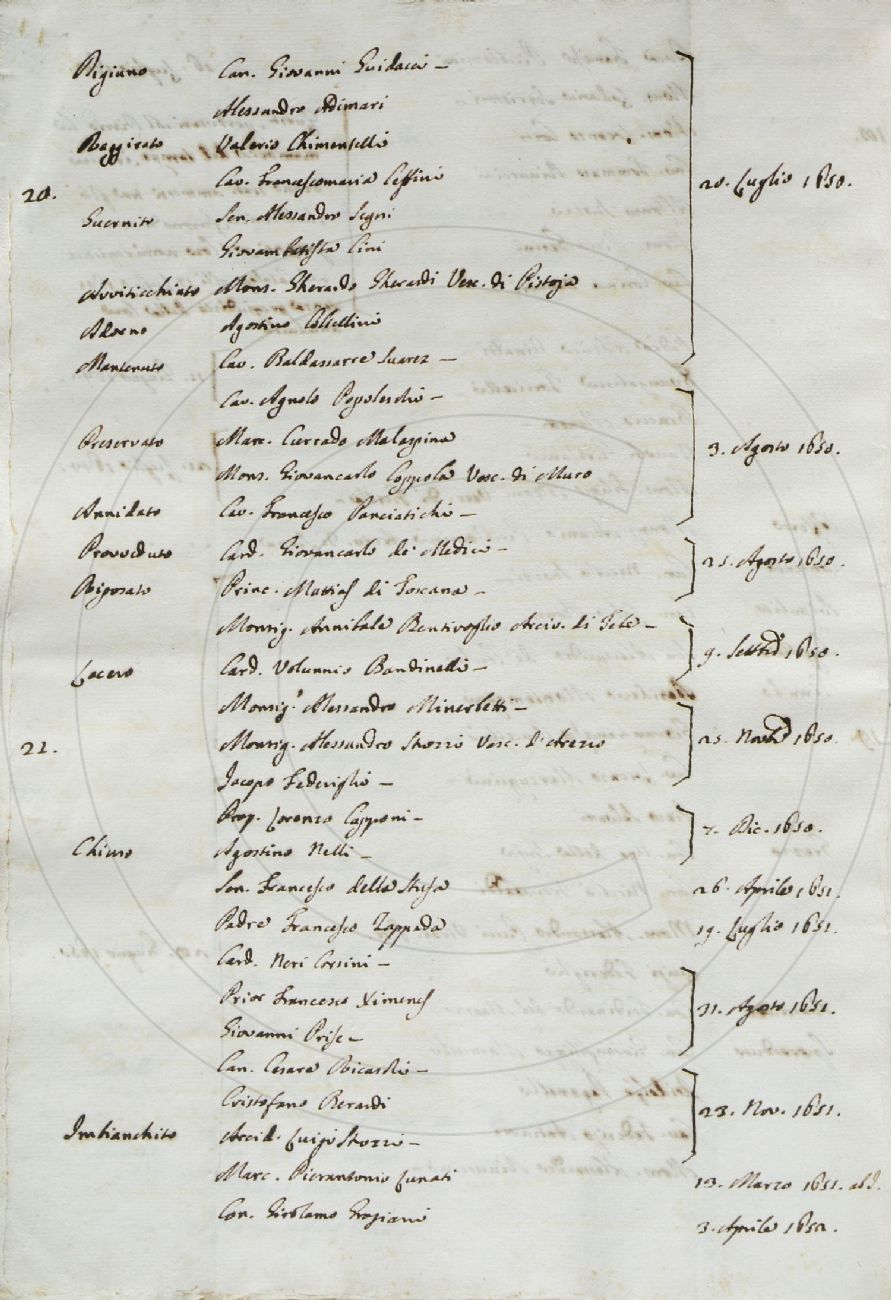 Rigiuno Can. Giovanni Guidacci –
Alessandro Adimari
Raggirato Valerio Chimentelli
Cav. Francescomaria Ceffini
20. 20. Luglio 1650.
Guernito Sen. Alessandro Segni
Giovambatista Cini
Avviticchiato Mons. Gherardo Gherardi Vesc. di Pistoja
Adseno Agostino Coltellini
Mantenuto Cav. Baldassarre Suarez –
Cav. Agnolo Popoleschi –
Preservato Marc. Currado Malaspina 3. Agosto 1650.
Mons. Giovancarlo Coppola Vesc. di Muro
Annidato Cav. Francesco Panciatichi –
Provveduto Card. Giovancarlo de' Medici – 21. Agosto 1650.
Riposato Princ. Mattias di Toscana –
Monsig. Annibale Bentivoglio Arciv. di Tebe –
9. Settre 1650.
Lacero Card. Volunnio Bandinelli –
Monsigr. Alessandro Minerbetti –
21. Monsig. Alessandro Strozzi Vesc. d'Arezzo 25. Novbre 1650.
Jacopo Federighi –
Prop. Lorenzo Capponi –
7. Dic. 1650.
Chiuso Agostino Nelli –
Sen. Francesco della Stufa 26. Aprile 1651.
Padre Francesco Zappada 19. Luglio 1651.
Card. Neri Corsini –
Prior Francesco Ximenes 31. Agosto 1651.
Giovanni Prise –
Can. Cesare Ricasoli –
Cristofano Berardi 23. Nov. 1651.
Imbianchito Arcid. Luigi Strozzi –
Marc. Pierantonio Lunati 13. Marzo 1651. ab I.
Con. Girolamo Graziani 3. Aprile 1652.